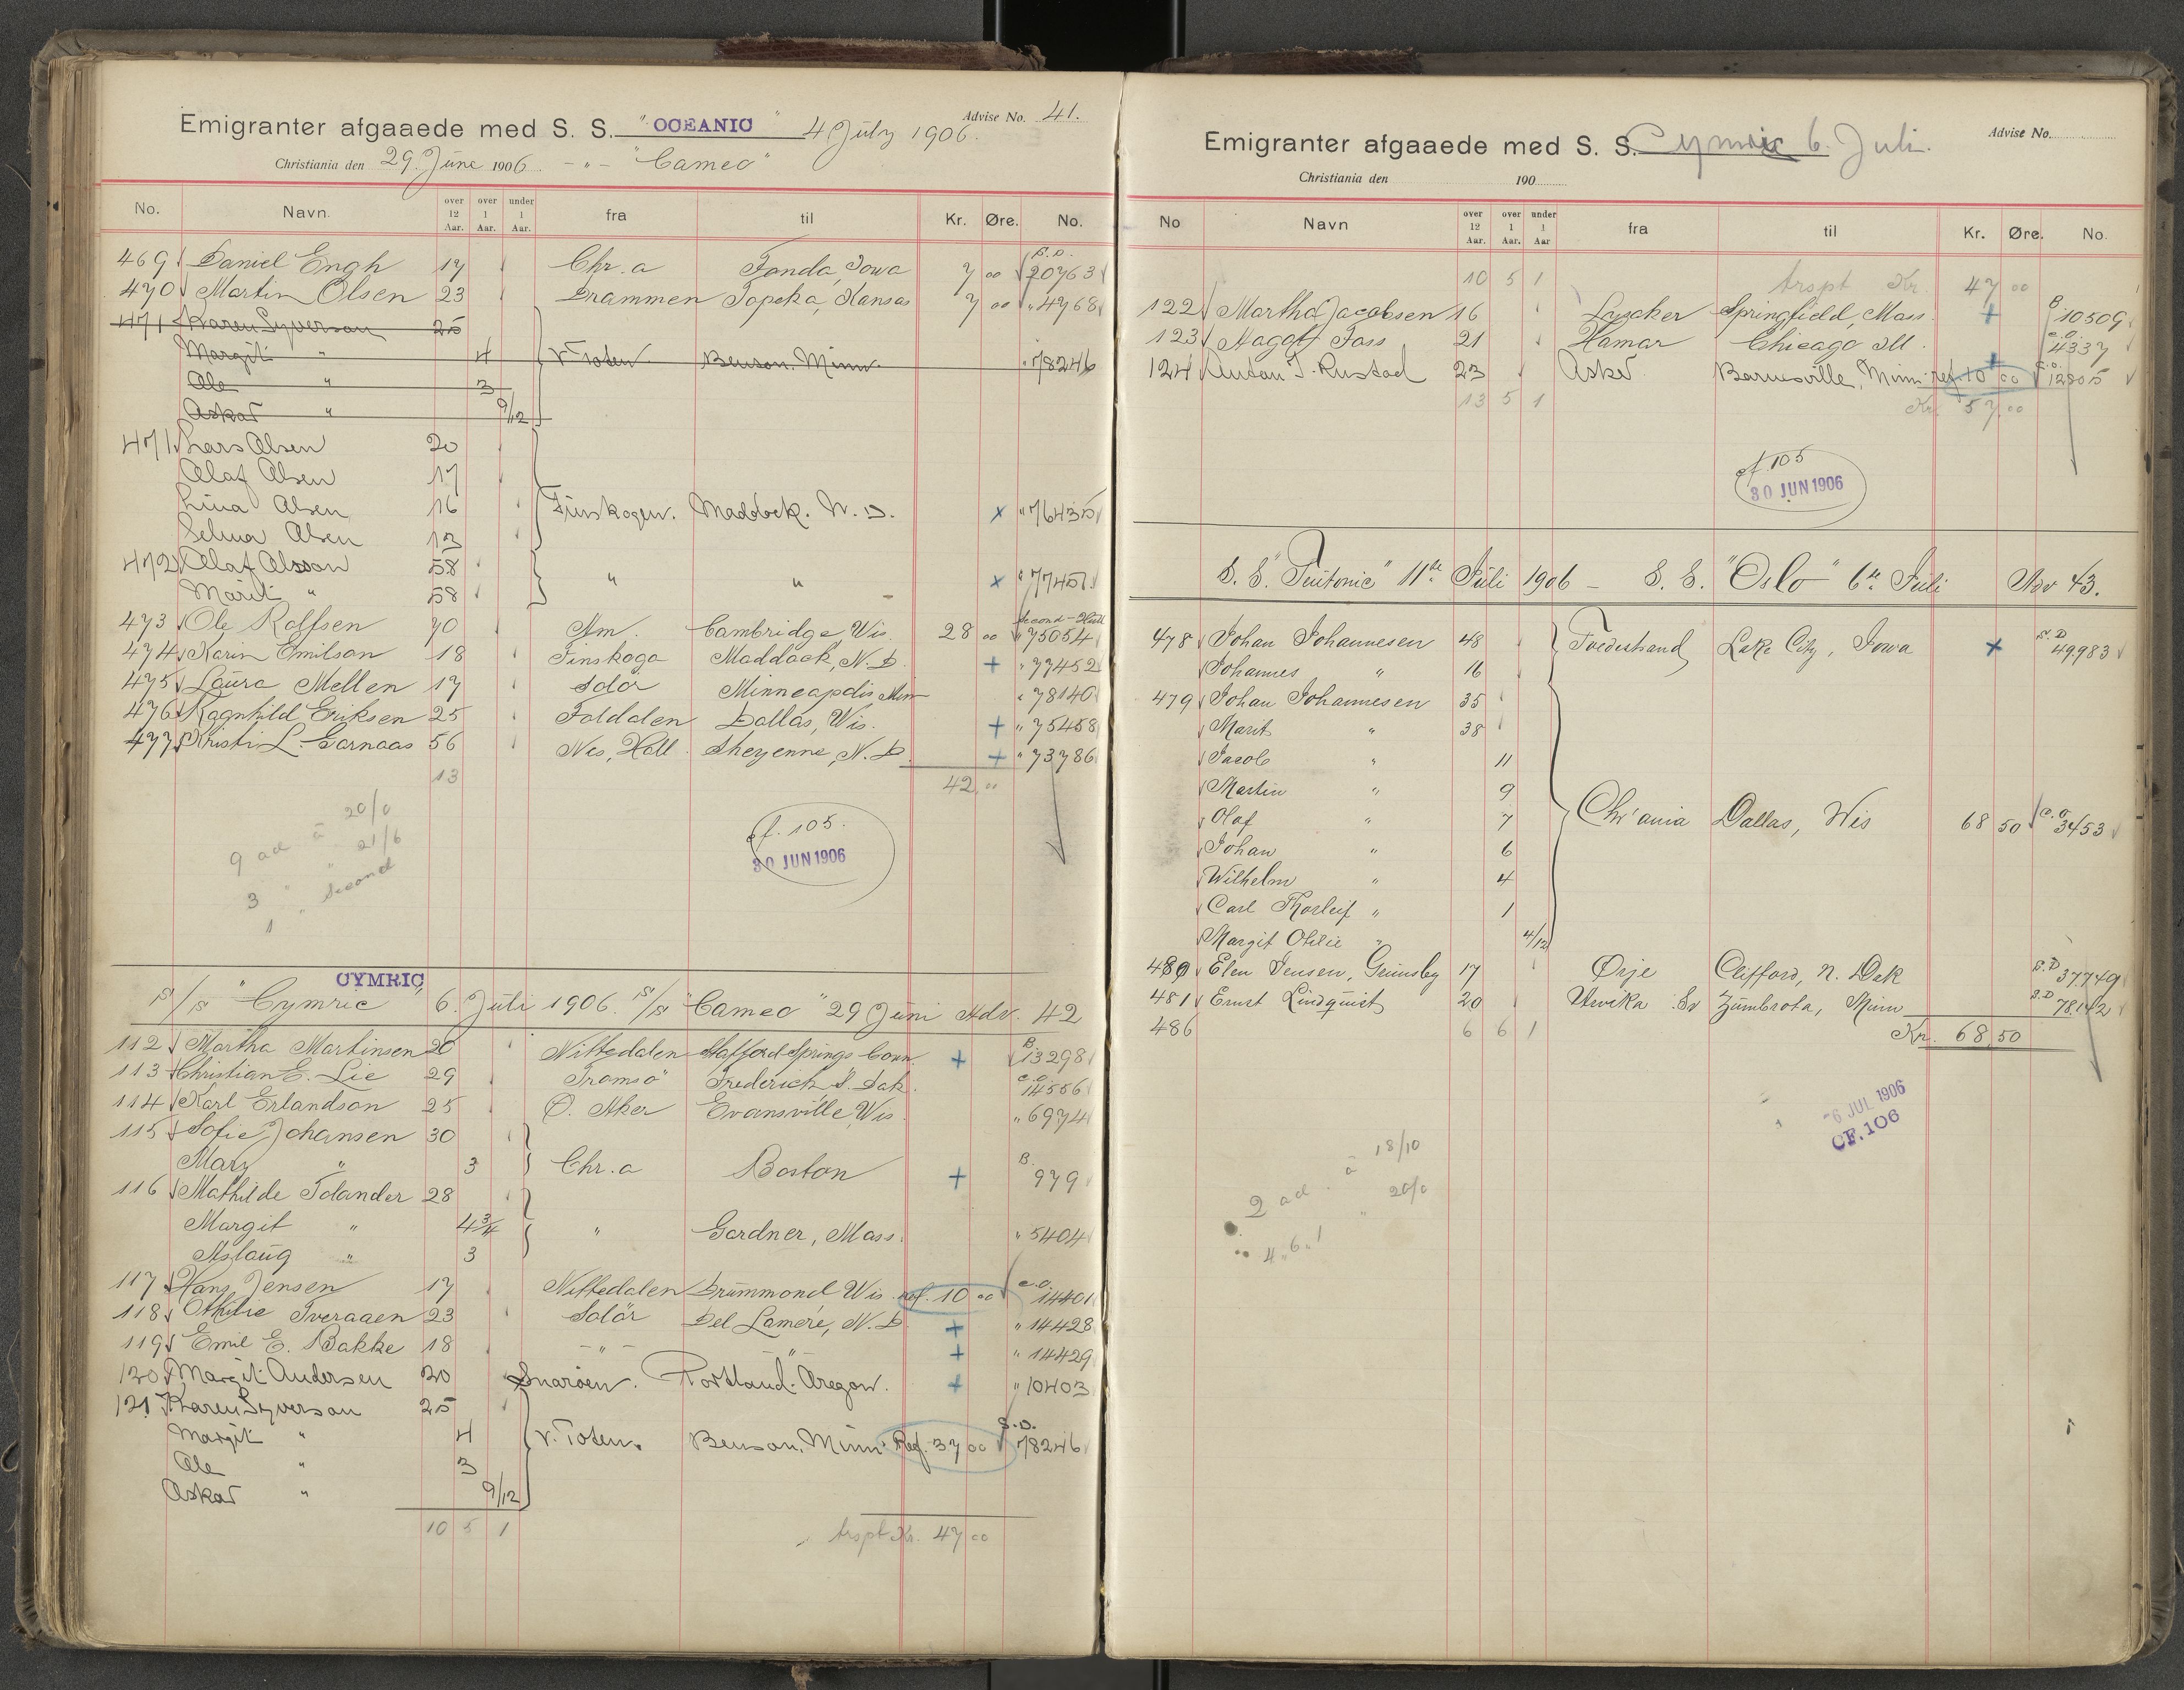 Advise No. 41.
Emigranter afgaaede med S. S. "OCEANIC" 4 July 1906.
Christiania den 29. June 1906 - " - "Cameo"
No. Navn. over 12 Aar. over 1 Aar. under 1 Aar. fra til Kr. Øre. No.
469 Daniel Engh 17 Chr.a Fonda, Iowa 7 00 S.D. 20763
470 Martin Olsen 23 Drammen Topeka, Kansas 7 00 " 4768
471 Karen Syverson 25
Margit " 4 V. Toten Benson. Minn. " 78246
Ole " 3
Oskar " 9/12
471 Lars Olsen 20
Olaf Olsen 17
Lina Olsen 16 Finskogen. Maddock. N. D. x " 76435
Selma Olsen 13
472 Olaf Olsson 58
Marit " 58 " " x " 77451
473 Ole Rolfsen 70 Am. Cambridge Wis. 28 00 " 75054
474 Karin Emilson 18 Finskoga Maddock, N. D. + " 77452
475 Laura Mellen 17 Solör Minneapolis Minn " 78140
476 Ragnhild Eriksen 25 Foldalen Dallas, Wis. + " 75458
477 Kristi L. Garnaas 56 Nes, Hall. Sheyenne, N. D. + " 73786
13 42 "
9 ad à 20/0
3 " " 21/6
1 " Second
cf. 105.
30 JUN 1906
CYMRIC
S/S "Cymric" 6. Juli 1906. S/S "Cameo" 29 Juni Adv. 42
112 Martha Martinsen 20 Nittedalen Stafford Springs Conn. + B. 13298
113 Christian E. Lie 29 Tromsö Frederick S. Dak. C.O. 14556
114 Karl Erlandson 25 Ø. Aker Evansville, Wis. " 6974
115 Sofie Johansen 30
Mary " 3 Chr.a Boston + B. 979
116 Mathilde Tolander 28
Margit " 4 3/4 " Gardner, Mass. " 5404
Aslaug " 3
117 Hans Jensen 17 Nittedalen Drummond Wis. ref. 10 00 C.O. 14401
118 Othilie Tveraaen 23 Solör Del Lamere, N. D. + " 14428
119 Emil E. Bakke 18 - " - - " - + " 14429
120 Margit Andersen 20 Snaröen. Portland. Oregon. + " 10403
121 Karen Syverson 25
Margit " 4 V. Toten. Benson. Minn. Ref. 37 00 S.D. 78246
Ole " 3
Oskar " 9/12
10 5 1 trspt Kr. 47 00
Advise No.
Emigranter afgaaede med S. S. Cymric 6. Juli.
Christiania den 190
No Navn over 12 Aar. over 1 Aar. under 1 Aar fra til Kr. Øre. No.
10 5 1 trspt Kr. 47 00
122 Martha Jacobsen 16 Lysaker Springfield, Mass. + B 10509
123 Hagolf Foss 21 Hamar Chicago Ill. C.O. 4337
124 Anton T. Rustad 23 Asker Barnesville, Minn. ref. 10 00 C.O. 12805
13 5 1 Kr. 57,00
cf. 105
30 JUN 1906
S. S. "Teutonic" 11te Juli 1906 - S. S. "Oslo" 6te Juli Adv 43.
478 Johan Johannesen 48 Tvedestrand Lake City, Iowa x S.D 49983
Johannes " 16
479 Johan Johannesen 35
Marit " 38
Jacob " 11
Martin " 9
Olaf " 7 Chr'ania Dallas, Wis 68 50 C.O 3453
Johan " 6
Wilhelm " 4
Carl Thorleif " 1
Margit Otilie " 4/12
480 Elen Jensen, Grimsby 17 Ørje Clifford, N. Dak S.D 37749
481 Ernst Lindquist 20 Arvika Sv Zumbrota, Minn S.D 78142
486 6 6 1 Kr. 68,50
6 JUL 1906
CF. 106
2 ad. à 18/10
" 20/0
4 " 6 " 1